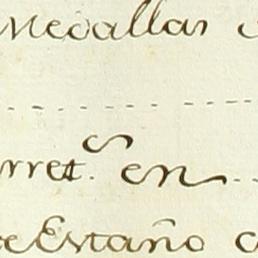 Medallas
rret.º en
de Estaño